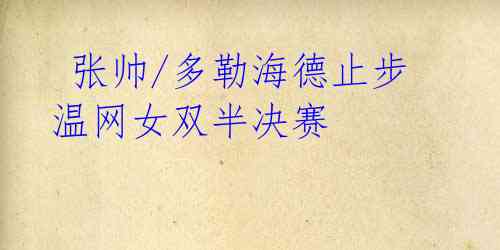 张帅/多勒海德止步
温网女双半决赛